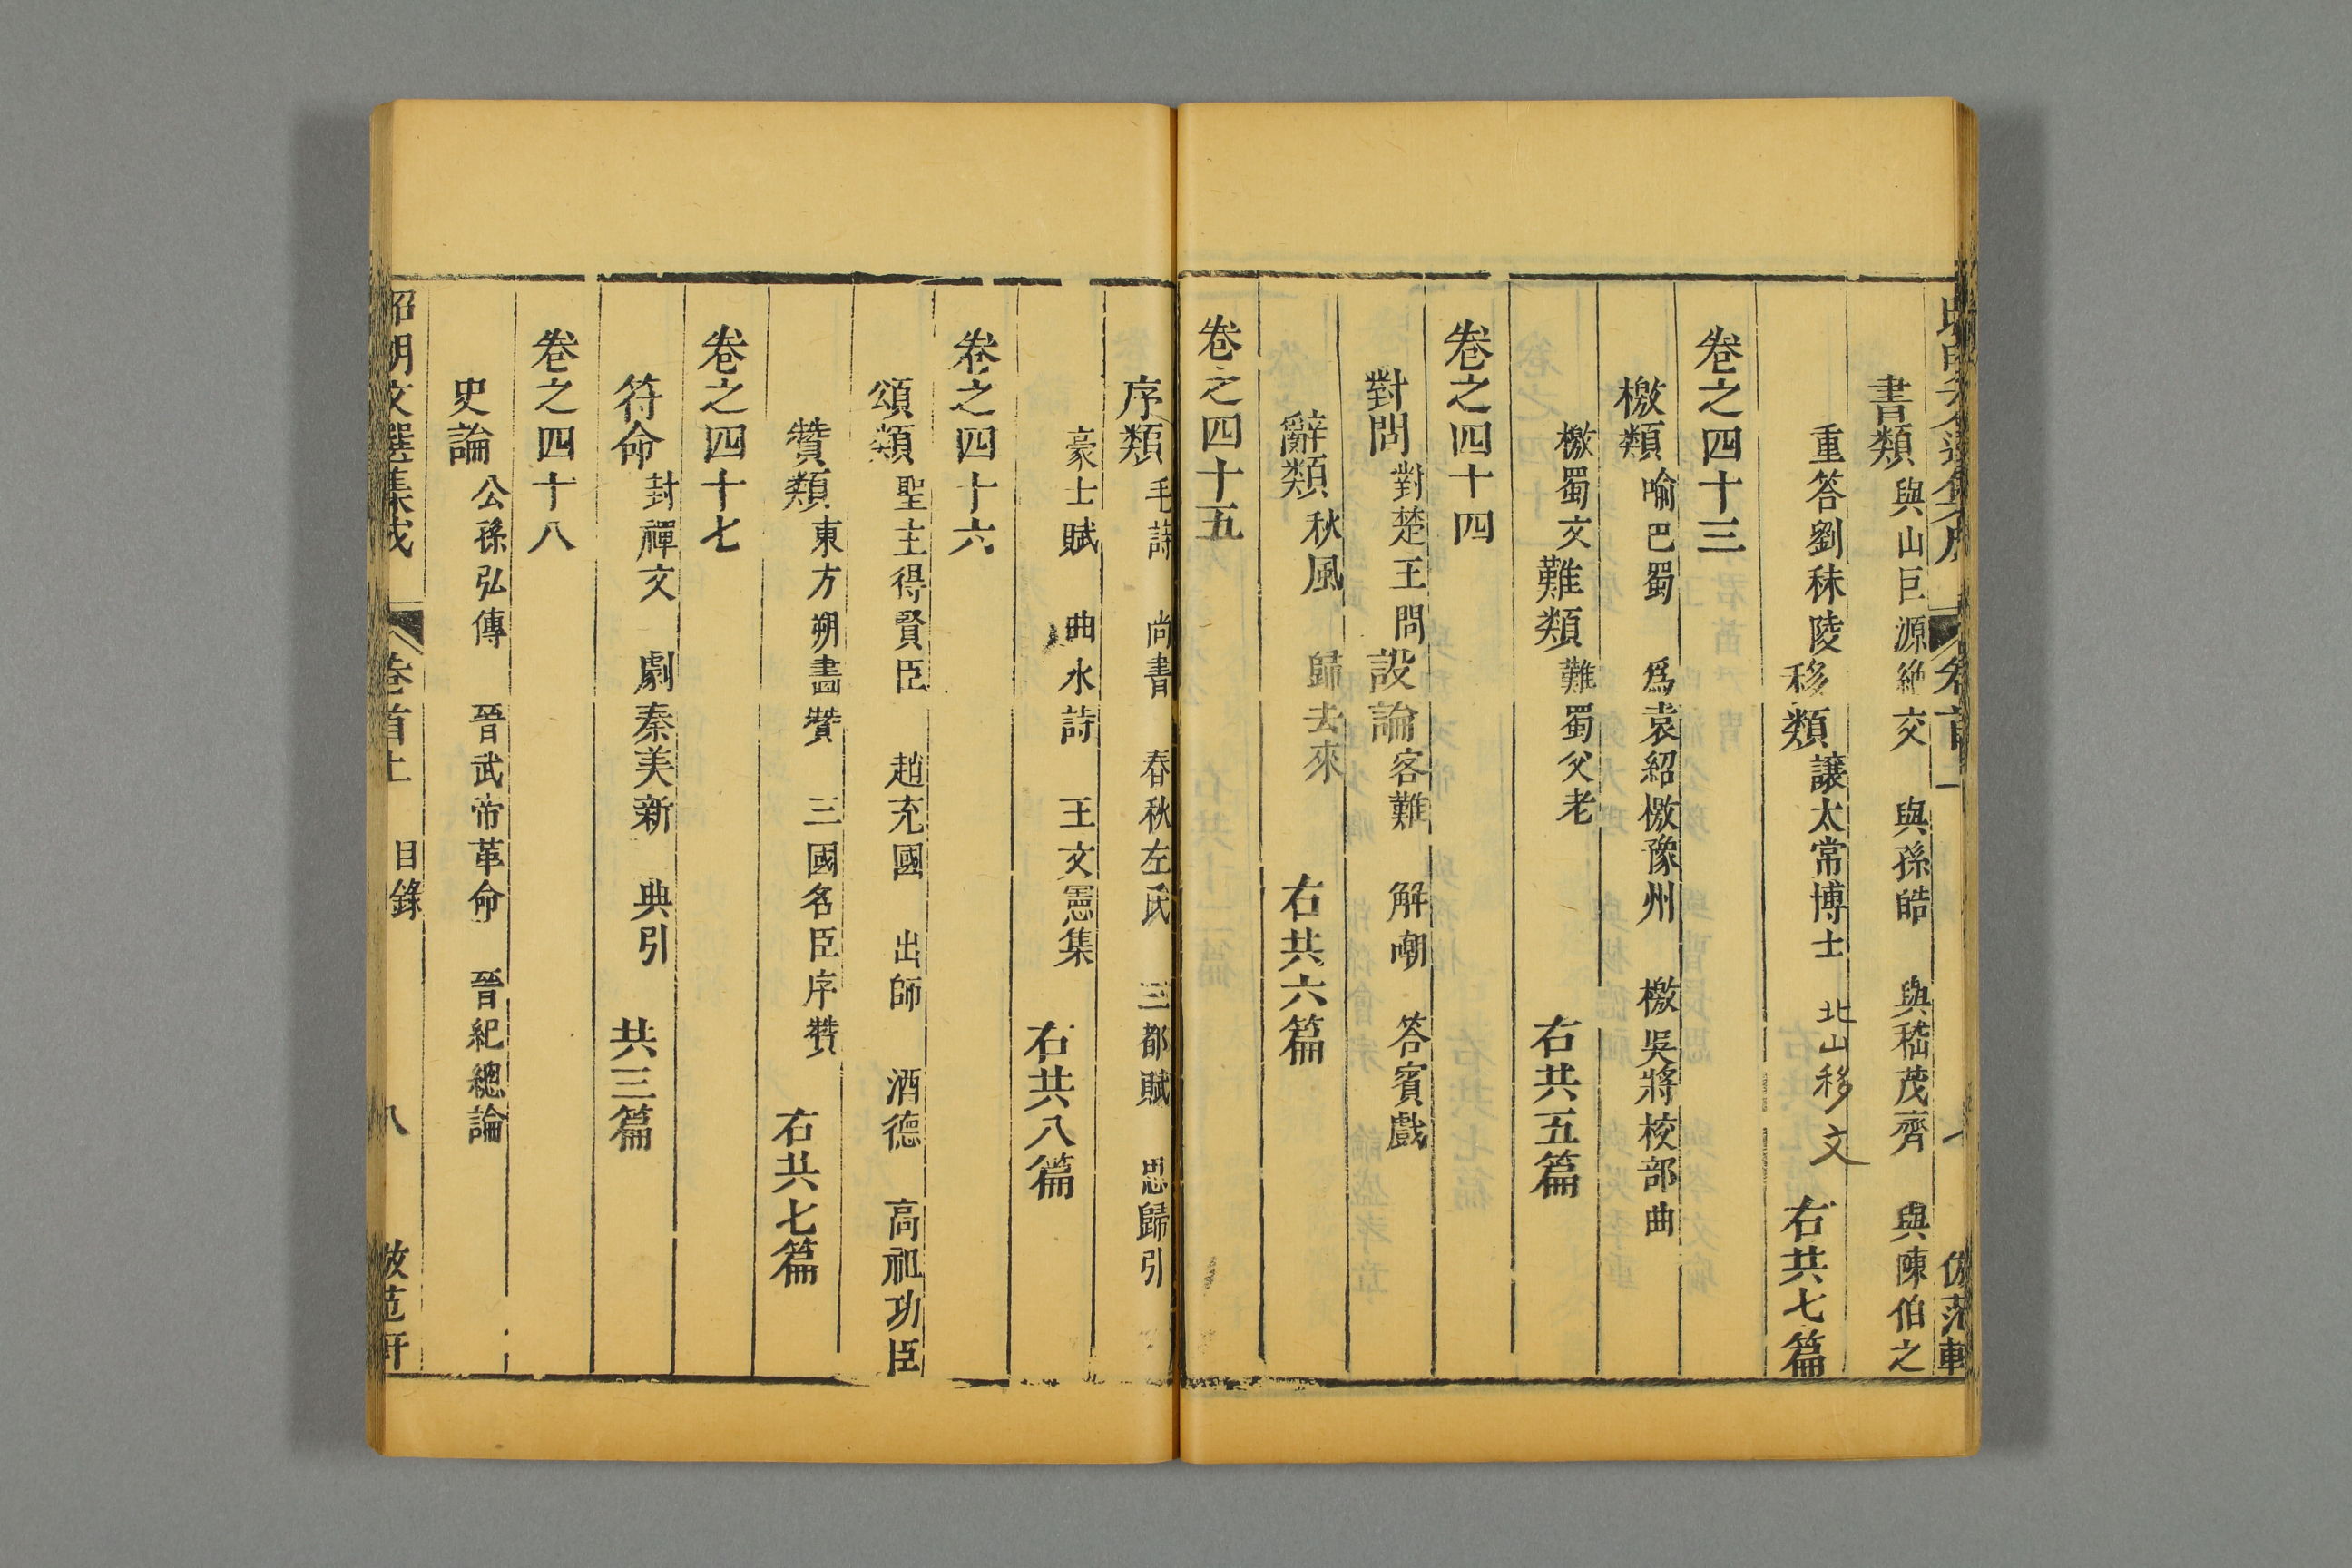 書類 與山巨源絶交 與孫皓 與嵇茂齊 與陳伯之
重答劉秣陵 移類 讓太常博士 北山移文 右共七篇
卷之四十三
檄類 喻巴蜀 爲袁紹檄豫州 檄吳將校部曲
檄蜀文 難類 難蜀父老 右共五篇
卷之四十四
對問 對楚王問 設論 客難 解嘲 答賓戲
辭類 秋風 歸去來 右共六篇
卷之四十五
序類 毛詩 尚書 春秋左氏 三都賦 思歸引
豪士賦 曲水詩 王文憲集 右共八篇
卷之四十六
頌類 聖主得賢臣 趙充國 出師 酒德 高祖功臣
贊類 東方朔畫贊 三國名臣序贊 右共七篇
卷之四十七
符命 封禪文 劇秦美新 典引 共三篇
卷之四十八
史論 公孫弘傳 晉武帝革命 晉紀總論
昭明文選集成 卷首上 目錄 八 倣范軒